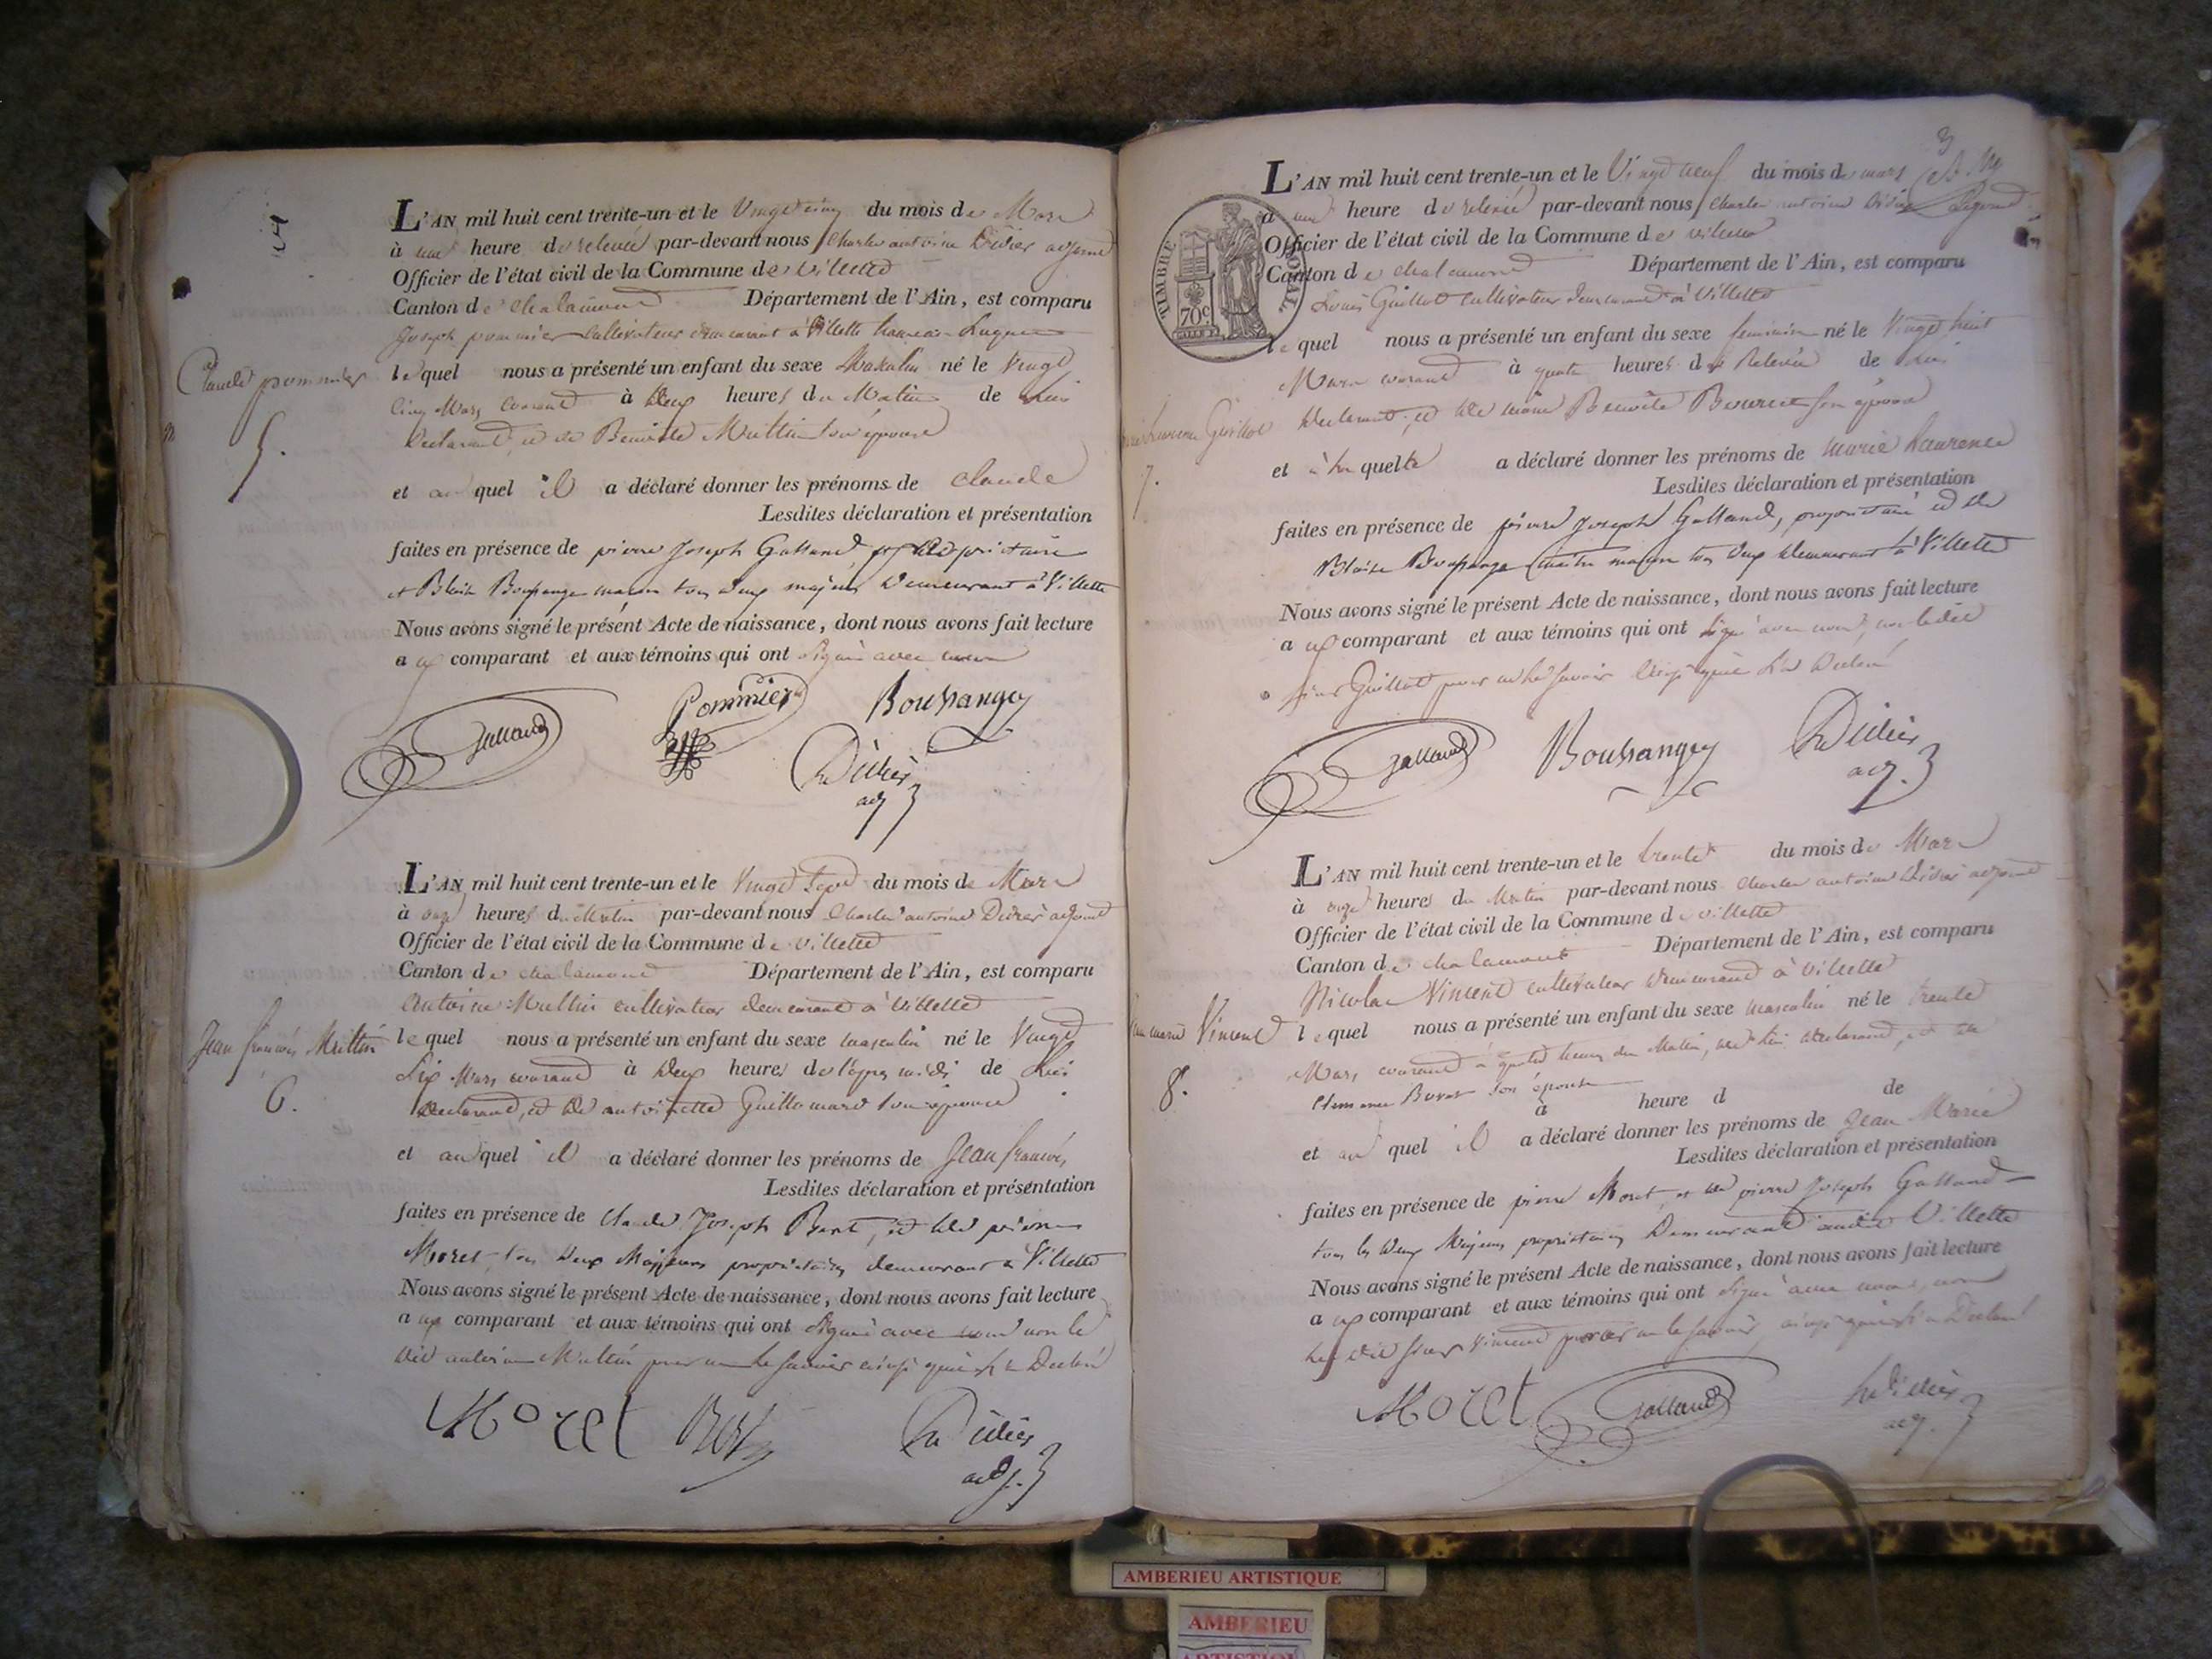 L'AN mil huit cent trente-un et le Vingt cinq du mois de Mars
à une heure de relevée par-devant nous Charles antoine Didier adjoint
Officier de l'état civil de la Commune de villette
Canton de chalamont Département de l'Ain, est comparu
Joseph pommier Cultivateur demeurant à Villette
Claude pommier
5.
le quel nous a présenté un enfant du sexe Maskulin né le Vingt
Cinq Mars Courant à deux heures du Matin de lui
declarant, et de Benoite Mittin son épouse
et au quel il a déclaré donner les prénoms de Claude
Lesdites déclaration et présentation
faites en présence de pierre Joseph Galland, propriétaire
et Blaise Boussange maçon tous deux majeurs Demeurant à Villette
Nous avons signé le présent Acte de naissance, dont nous avons fait lecture
aux comparant et aux témoins qui ont Signé avec nous
Galland Pommier Boussangey
Ch Didier
adj
L'AN mil huit cent trente-un et le Vingt Sept du mois de Mars
à onze heures du Matin par-devant nous Charles antoine Didier adjoint
Officier de l'état civil de la Commune de villette
Canton de chalamont Département de l'Ain, est comparu
Antoine Mittin cultivateur demeurant à Villette
Jean françois Mittin
6.
le quel nous a présenté un enfant du sexe masculin né le Vingt
Six Mars courant à deux heures de l'apres midi de lui
declarant, et de antoinette Guillemard son épouse
et au quel il a déclaré donner les prénoms de Jean françois
Lesdites déclaration et présentation
faites en présence de Claude Joseph et de pierre
Moret, tous deux Majeurs propriétaires demeurant à Villette
Nous avons signé le présent Acte de naissance, dont nous avons fait lecture
aux comparant et aux témoins qui ont Signé avec nous non le
dit antoine Mittin pour ne le savoir ainsi qu'il l'a Declaré
Moret
Ch Didier
adj.
3
L'AN mil huit cent trente-un et le Vingt neuf du mois de mars
à une heure de relevée par-devant nous Charles antoine Didier adjoint
Officier de l'état civil de la Commune de villette
Canton de chalamont Département de l'Ain, est comparu
TIMBRE ROYAL
70c
Louis Guillot Cultivateur demeurant à Villette
le quel nous a présenté un enfant du sexe feminin né le Vingt huit
Mars courant à quatre heures de Relevée de lui
Guillot
7.
declarant, et de Benoite son épouse
et à la quelle a déclaré donner les prénoms de marie Laurence
Lesdites déclaration et présentation
faites en présence de pierre Joseph Galland, propriétaire et de
Blaise Boussange maître maçon tous deux demeurant à Villette
Nous avons signé le présent Acte de naissance, dont nous avons fait lecture
aux comparant et aux témoins qui ont signé avec nous, non le dit
sieur Guillot pour ne le savoir ainsi qu'il l'a Declaré
Galland Boussangey Ch Didier
adj.
L'AN mil huit cent trente-un et le trente du mois de Mars
à onze heures du Matin par-devant nous Charles antoine Didier adjoint
Officier de l'état civil de la Commune de villette
Canton de chalamont Département de l'Ain, est comparu
Nicolas Vincent cultivateur demeurant à Villette
Vincent
8.
le quel nous a présenté un enfant du sexe masculin né le trente
Mars courant à quatre heures du Matin, de lui declarant, et de
son épouse
à heure d de
et au quel il a déclaré donner les prénoms de Jean Marie
Lesdites déclaration et présentation
faites en présence de pierre Moret et de pierre Joseph Galland
tous les deux Majeurs propriétaires Demeurant audit Villette
Nous avons signé le présent Acte de naissance, dont nous avons fait lecture
aux comparant et aux témoins qui ont signé avec nous, non
le dit sieur Vincent pour ne le savoir, ainsi qu'il l'a Declaré
Moret Galland Ch Didier
adj.
AMBERIEU ARTISTIQUE
AMBERIEU
ARTISTIQUE